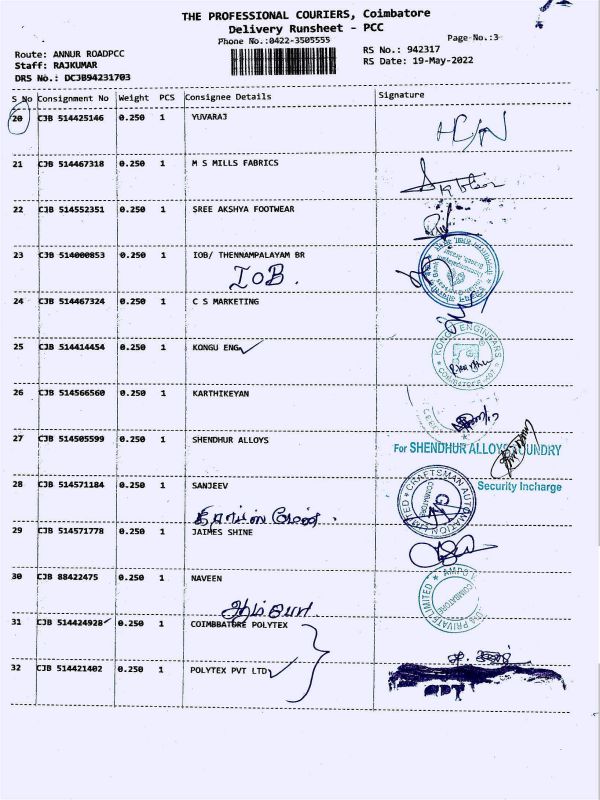 THE PROFESSIONAL COURIERS, Coimbatore
Delivery Runsheet - PCC
Phone No.:0422-3505555
Page-No.:3
Route: ANNUR ROADPCC
RS No.: 942317
Staff: RAJKUMAR
RS Date: 19-May-2022
DRS No.: DCJB94231703
S No Consignment No Weight PCS Consignee Details Signature
20 CJB 514425146 0.250 1 YUVARAJ
21 CJB 514467318 0.250 1 M S MILLS FABRICS
22 CJB 514552351 0.250 1 SREE AKSHYA FOOTWEAR
23 CJB 514000853 0.250 1 IOB/ THENNAMPALAYAM BR
IOB.
24 CJB 514467324 0.250 1 C S MARKETING
25 CJB 514414454 0.250 1 KONGU ENG
KONGU ENGINEARS
COIMBATORE
26 CJB 514566560 0.250 1 KARTHIKEYAN
27 CJB 514505599 0.250 1 SHENDHUR ALLOYS
For SHENDHUR ALLOYS FOUNDRY
Security Incharge
28 CJB 514571184 0.250 1 SANJEEV
CRAFTSMAN AUTOMATION LIMITED
COIMBATORE
29 CJB 514571778 0.250 1 JAIMES SHINE
30 CJB 88422475 0.250 1 NAVEEN
PRIVATE LIMITED
COIMBATORE
31 CJB 514424928 0.250 1 COIMBBATURE POLYTEX
32 CJB 514421402 0.250 1 POLYTEX PVT LTD